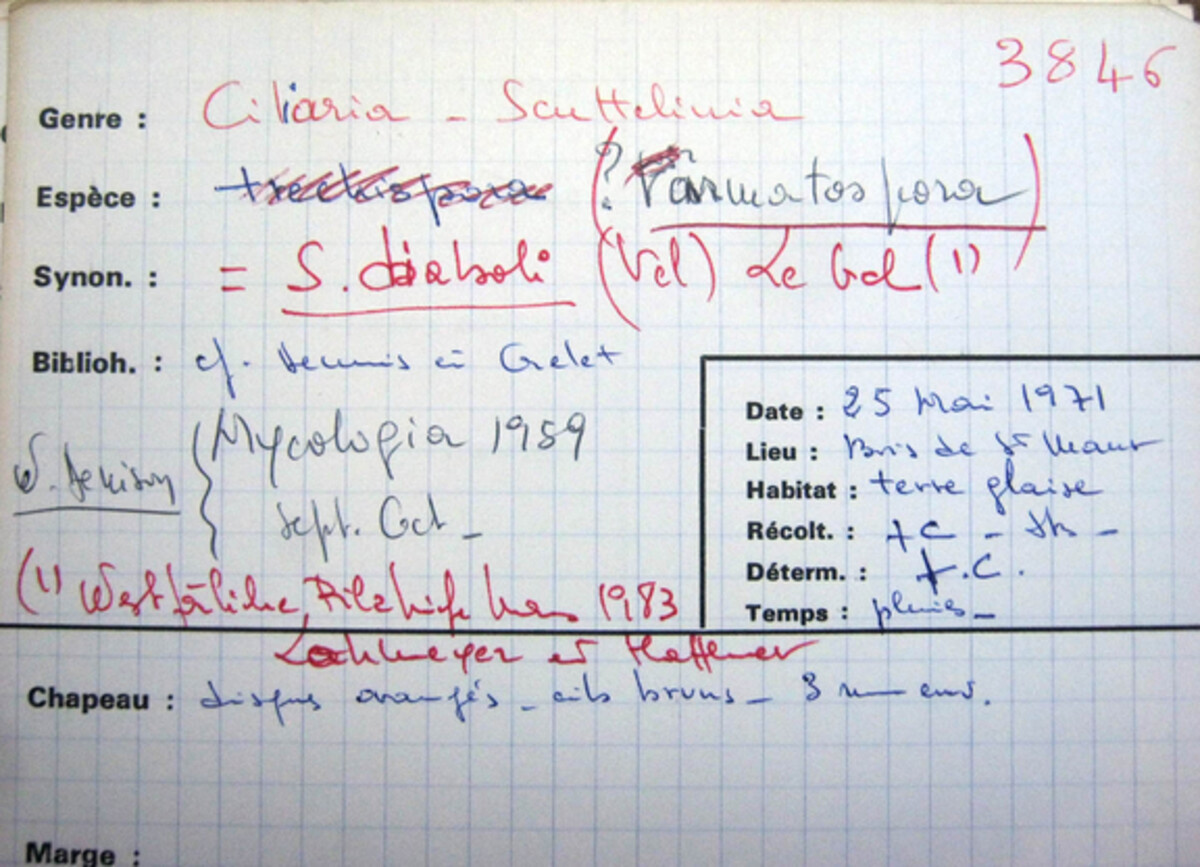 3846
Genre : Ciliaria - Scuttelinia
Espèce : trechispora (? armatospora)
Synon. : = S. diaboli (Vel) Le Gal (1)
Biblioh. : cf. Dennis et Grelet
W. Denison Mycologia 1959
sept. Oct -
(1) 1983
et Haffner
Date : 25 Mai 1971
Lieu : Bois de St Maur
Habitat : terre glaise
Récolt. : +C -
Déterm. : +.C.
Temps : pluies -
Chapeau : disques orangés - cils bruns - 3 mm env.
Marge :